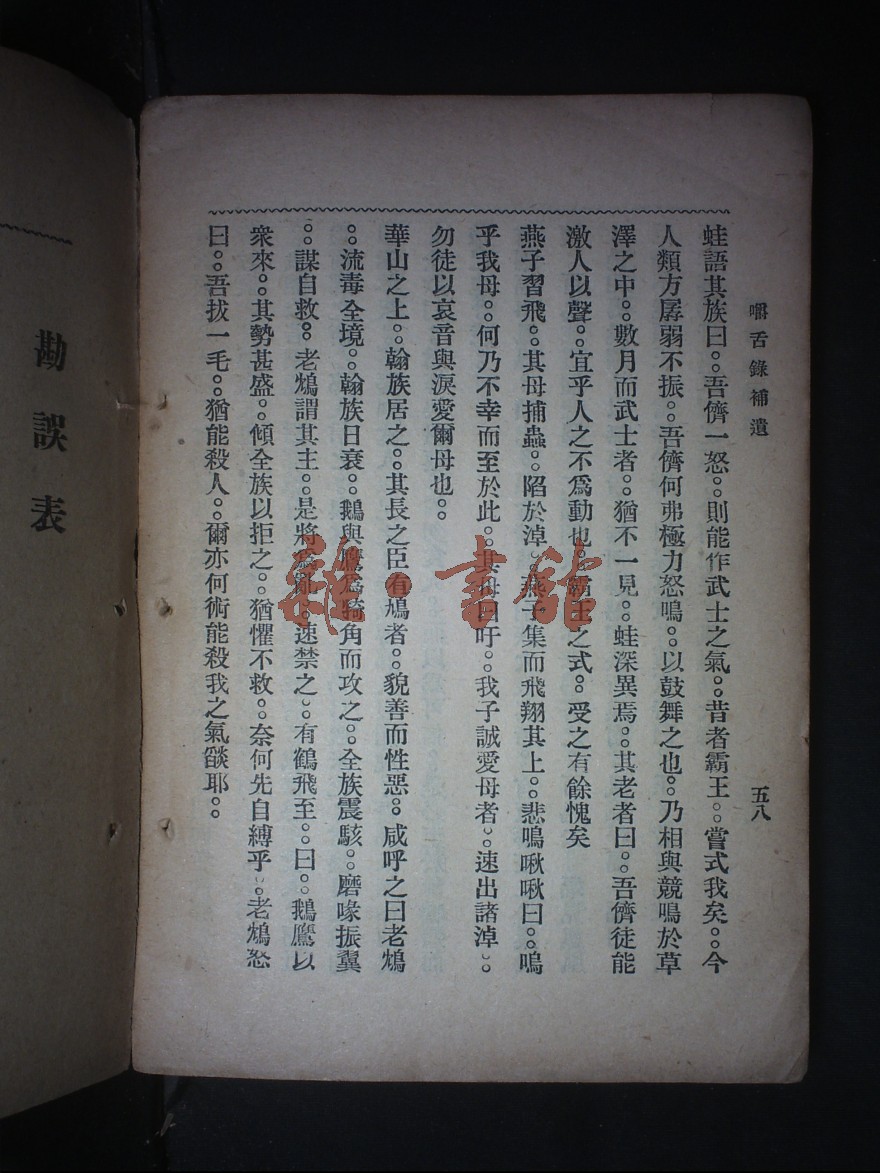 嚼舌錄補遺
五八
蛙語其族曰。。吾儕一怒。。則能作武士之氣。。昔者霸王。。嘗式我矣。。今
人類方孱弱不振。。吾儕何弗極力怒鳴。。以鼓舞之也。。乃相與競鳴於草
澤之中。。數月而武士者。。猶不一見。。蛙深異焉。。其老者曰。。吾儕徒能
激人以聲。。宜乎人之不爲動也。。霸王之式。。受之有餘愧矣
燕子習飛。。其母捕蟲。。陷於淖。。燕子集而飛翔其上。。悲鳴啾啾曰。。嗚
乎我母。。何乃不幸而至於此。。其母曰吁。。我子誠愛母者。。速出諸淖。。
勿徒以哀音與淚愛爾母也。。
華山之上。。翰族居之。。其長之臣有鴆者。。貌善而性惡。。咸呼之曰老鴆
。。流毒全境。。翰族日衰。。鵝與鷹爲犄角而攻之。。全族震駭。。磨喙振翼
。。謀自救。。老鴆謂其主。。是將爲亂。。速禁之。。有鶴飛至。。曰。。鵝鷹以
衆來。。其勢甚盛。。傾全族以拒之。。猶懼不救。。奈何先自縛乎。。老鴆怒
曰。。吾拔一毛。。猶能殺人。。爾亦何術能殺我之氣燄耶。。
勘誤表
雜·書館